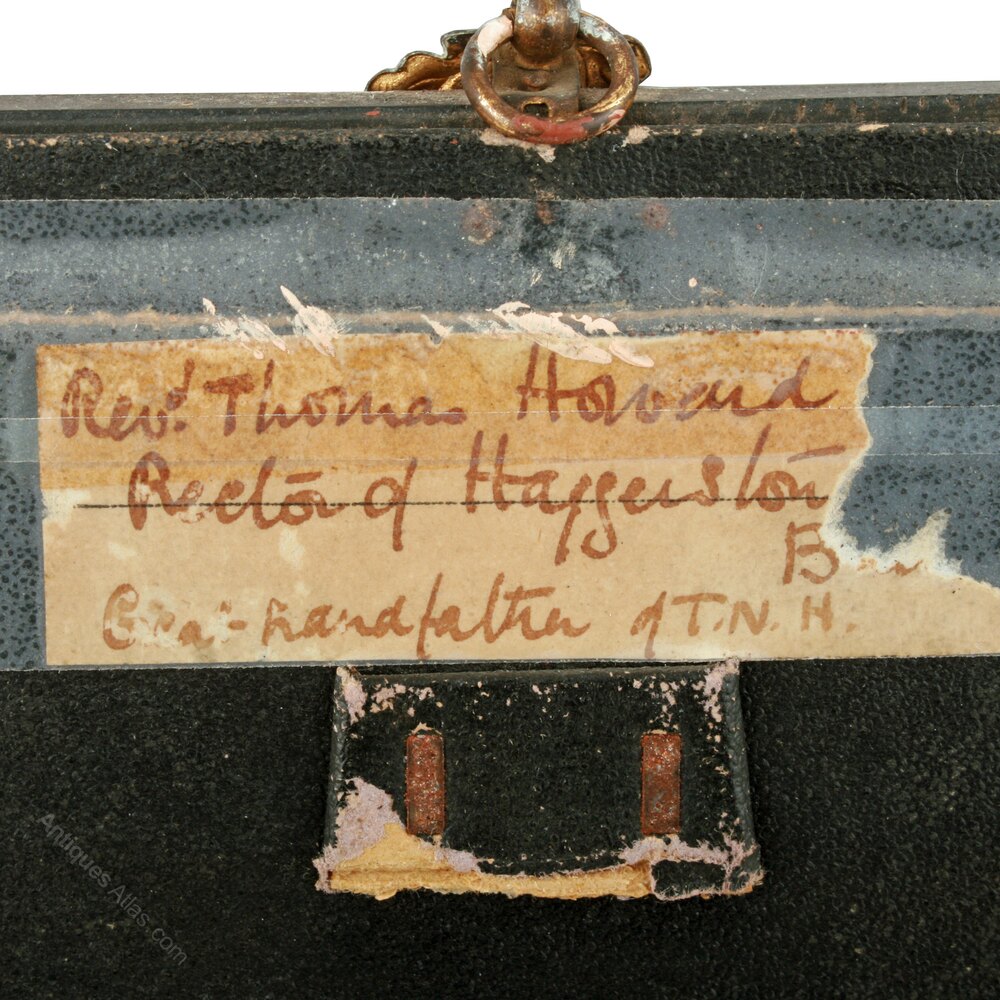 Revd. Thomas Howard
Rector of Haggerston
Great-grandfather of T.N.H.
Antiques Atlas.com